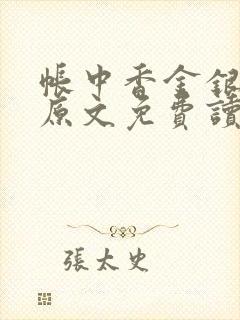 帳中香金銀
原文免費讀
張太史